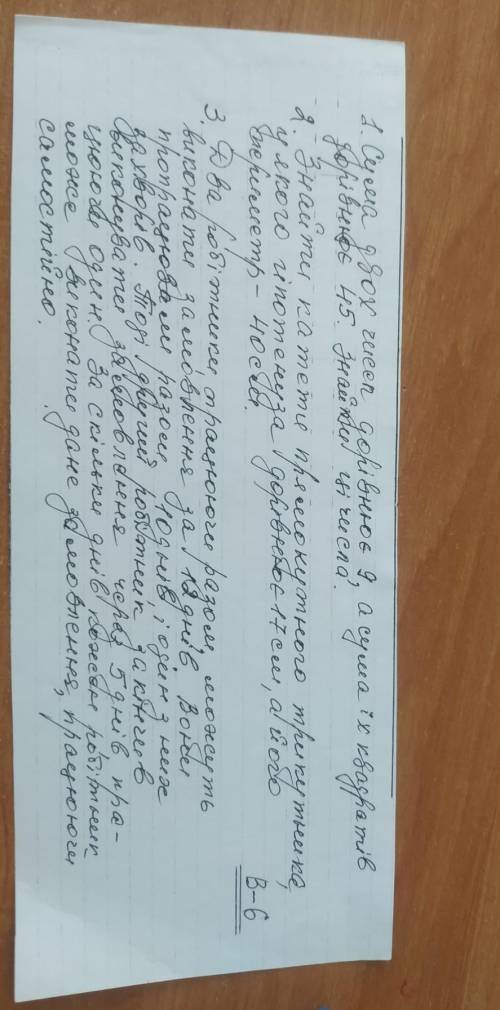 В-6
1. Сума двох чисел дорівнює 9, а сума їх квадратів
дорівнює 45. Знайти ці числа.
2. Знайти катети прямокутного трикутника,
у якого гіпотенуза дорівнює 17 см, а його
периметр - 40 см.
3. Два робітники працюючи разом, можуть
виконати замовлення за 12 днів. Вони
пропрацювали разом 10 днів, і один з них
захворів. Тоді другий робітник закінчив
виконувати замовлення через 5 днів пра-
цюючи один. За скільки днів кожен робітник
може виконати дане замовлення, працюючи
самостійно.